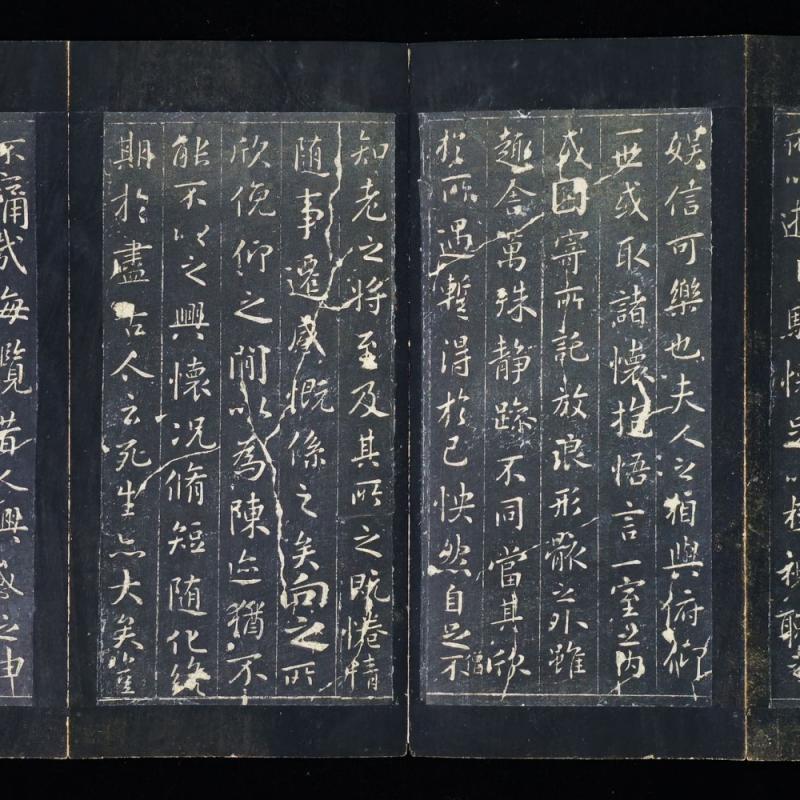 所以遊目騁懷足以極視聽之
娛信可樂也夫人之相與俯仰
一世或取諸懷抱悟言一室之內
或因寄所託放浪形骸之外雖
趣舍萬殊靜躁不同當其欣
僧
於所遇暫得於己怏然自足不
知老之將至及其所之既惓情
隨事遷感慨係之矣向之所
欣俛仰之閒以為陳迹猶不
能不以之興懷況脩短隨化終
期於盡古人云死生亦大矣豈
不痛哉每覽昔人興感之由